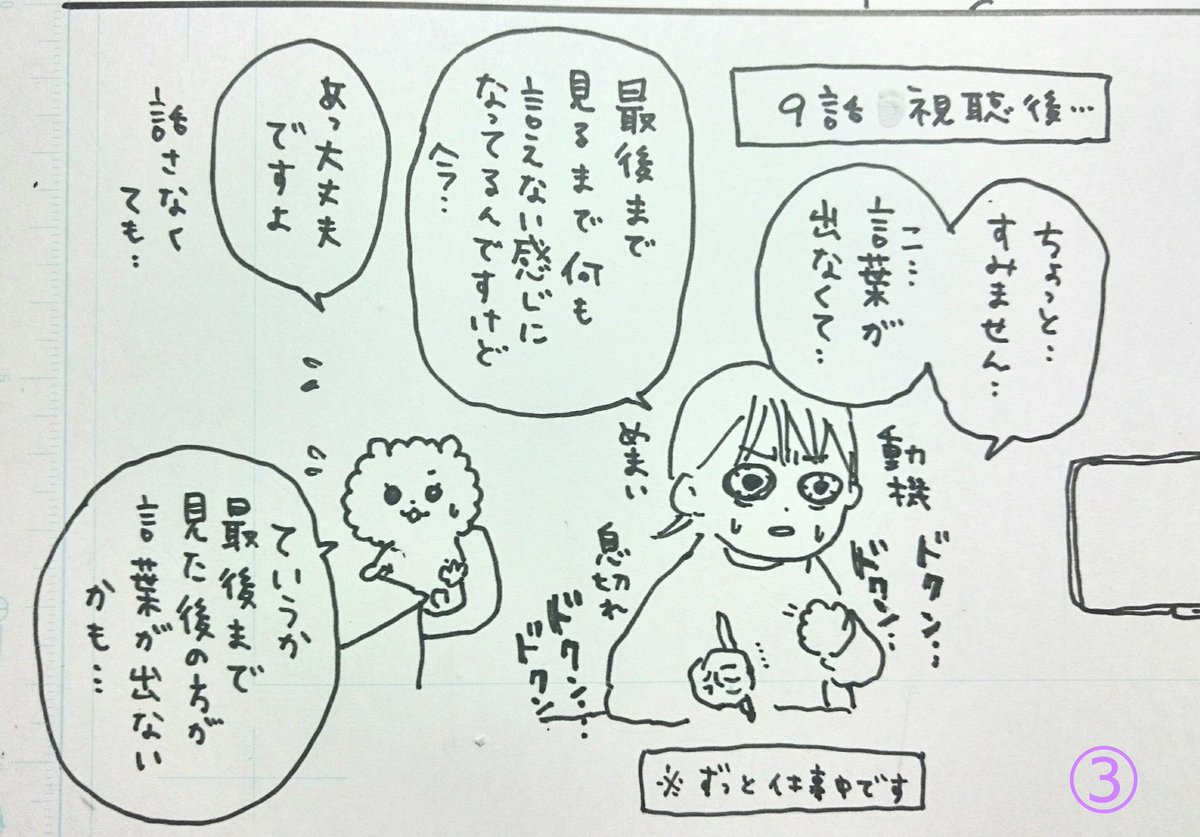 9話 視聴後…
ちょっと…
すみません…
こ…
言葉が
出なくて…
動機
ドクン…
ドクン…
最後まで
見るまで何も
言えない感じに
なってるんですけど
今…
めまい
息切れ
ドクン…
ドクン
あっ大丈夫
ですよ
話さなく
ても…
ていうか
最後まで
見た後の方が
言葉が出ない
かも…
※ずっと仕事中です
③